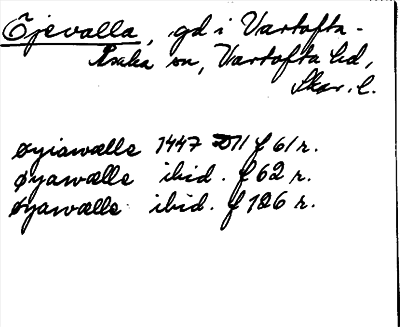 Öjevalla, gd i Vartofta-
Åsaka sn, Vartofta hd,
Skar. l.
øyiawælle 1447 f 61 r.
øyawælle ibid. f 62 r.
øyawælle ibid. f 126 r.